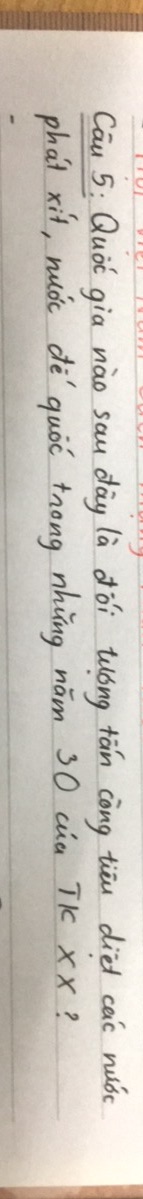 Câu 5: Quốc gia nào sau đây là đối tượng tấn công tiêu diệt các nước
phát xít, nước đế quốc trong những năm 30 của TK XX?
-